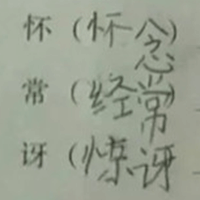 怀(怀念)
常(经常)
讶(惊讶)